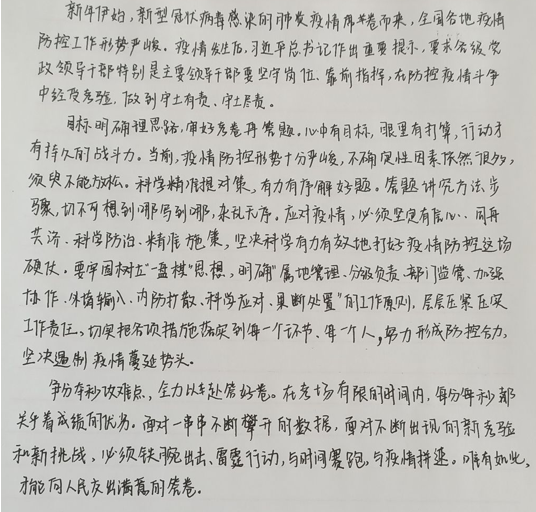 新年伊始，新型冠状病毒感染的肺炎疫情席卷而来，全国各地疫情
防控工作形势严峻。疫情发生后，习近平总书记作出重要指示，要求各级党
政领导干部特别是主要领导干部要坚守岗位、靠前指挥，在防控疫情斗争
中经受考验，做到守土有责、守土尽责。
目标明确理思路，审好考卷再答题。心中有目标，眼里有打算，行动才
有持久的战斗力。当前，疫情防控形势十分严峻，不确定性因素依然很多，
须臾不能放松。科学精准提对策，有力有序解好题。答题讲究方法步
骤，切不可想到哪写到哪，杂乱无序。应对疫情，必须坚定有信心、同舟
共济、科学防治、精准施策，坚决科学有力有效地打好疫情防控这场
硬仗。要牢固树立"一盘棋"思想，明确"属地管理、分级负责、部门监管、加强
协作、外防输入、内防扩散、科学应对、果断处置"的工作原则，层层压紧压实
工作责任，切实把各项措施落实到每一个环节、每一个人，努力形成防控合力，
坚决遏制疫情蔓延势头。
争分夺秒攻难点，全力以赴答好卷。在考场有限的时间内，每分每秒都
关乎着成绩的优劣。面对一串串不断攀升的数据，面对不断出现的新考验
和新挑战，必须铁腕出击、雷霆行动，与时间赛跑，与疫情拼速。唯有如此，
才能向人民交出满意的答卷。